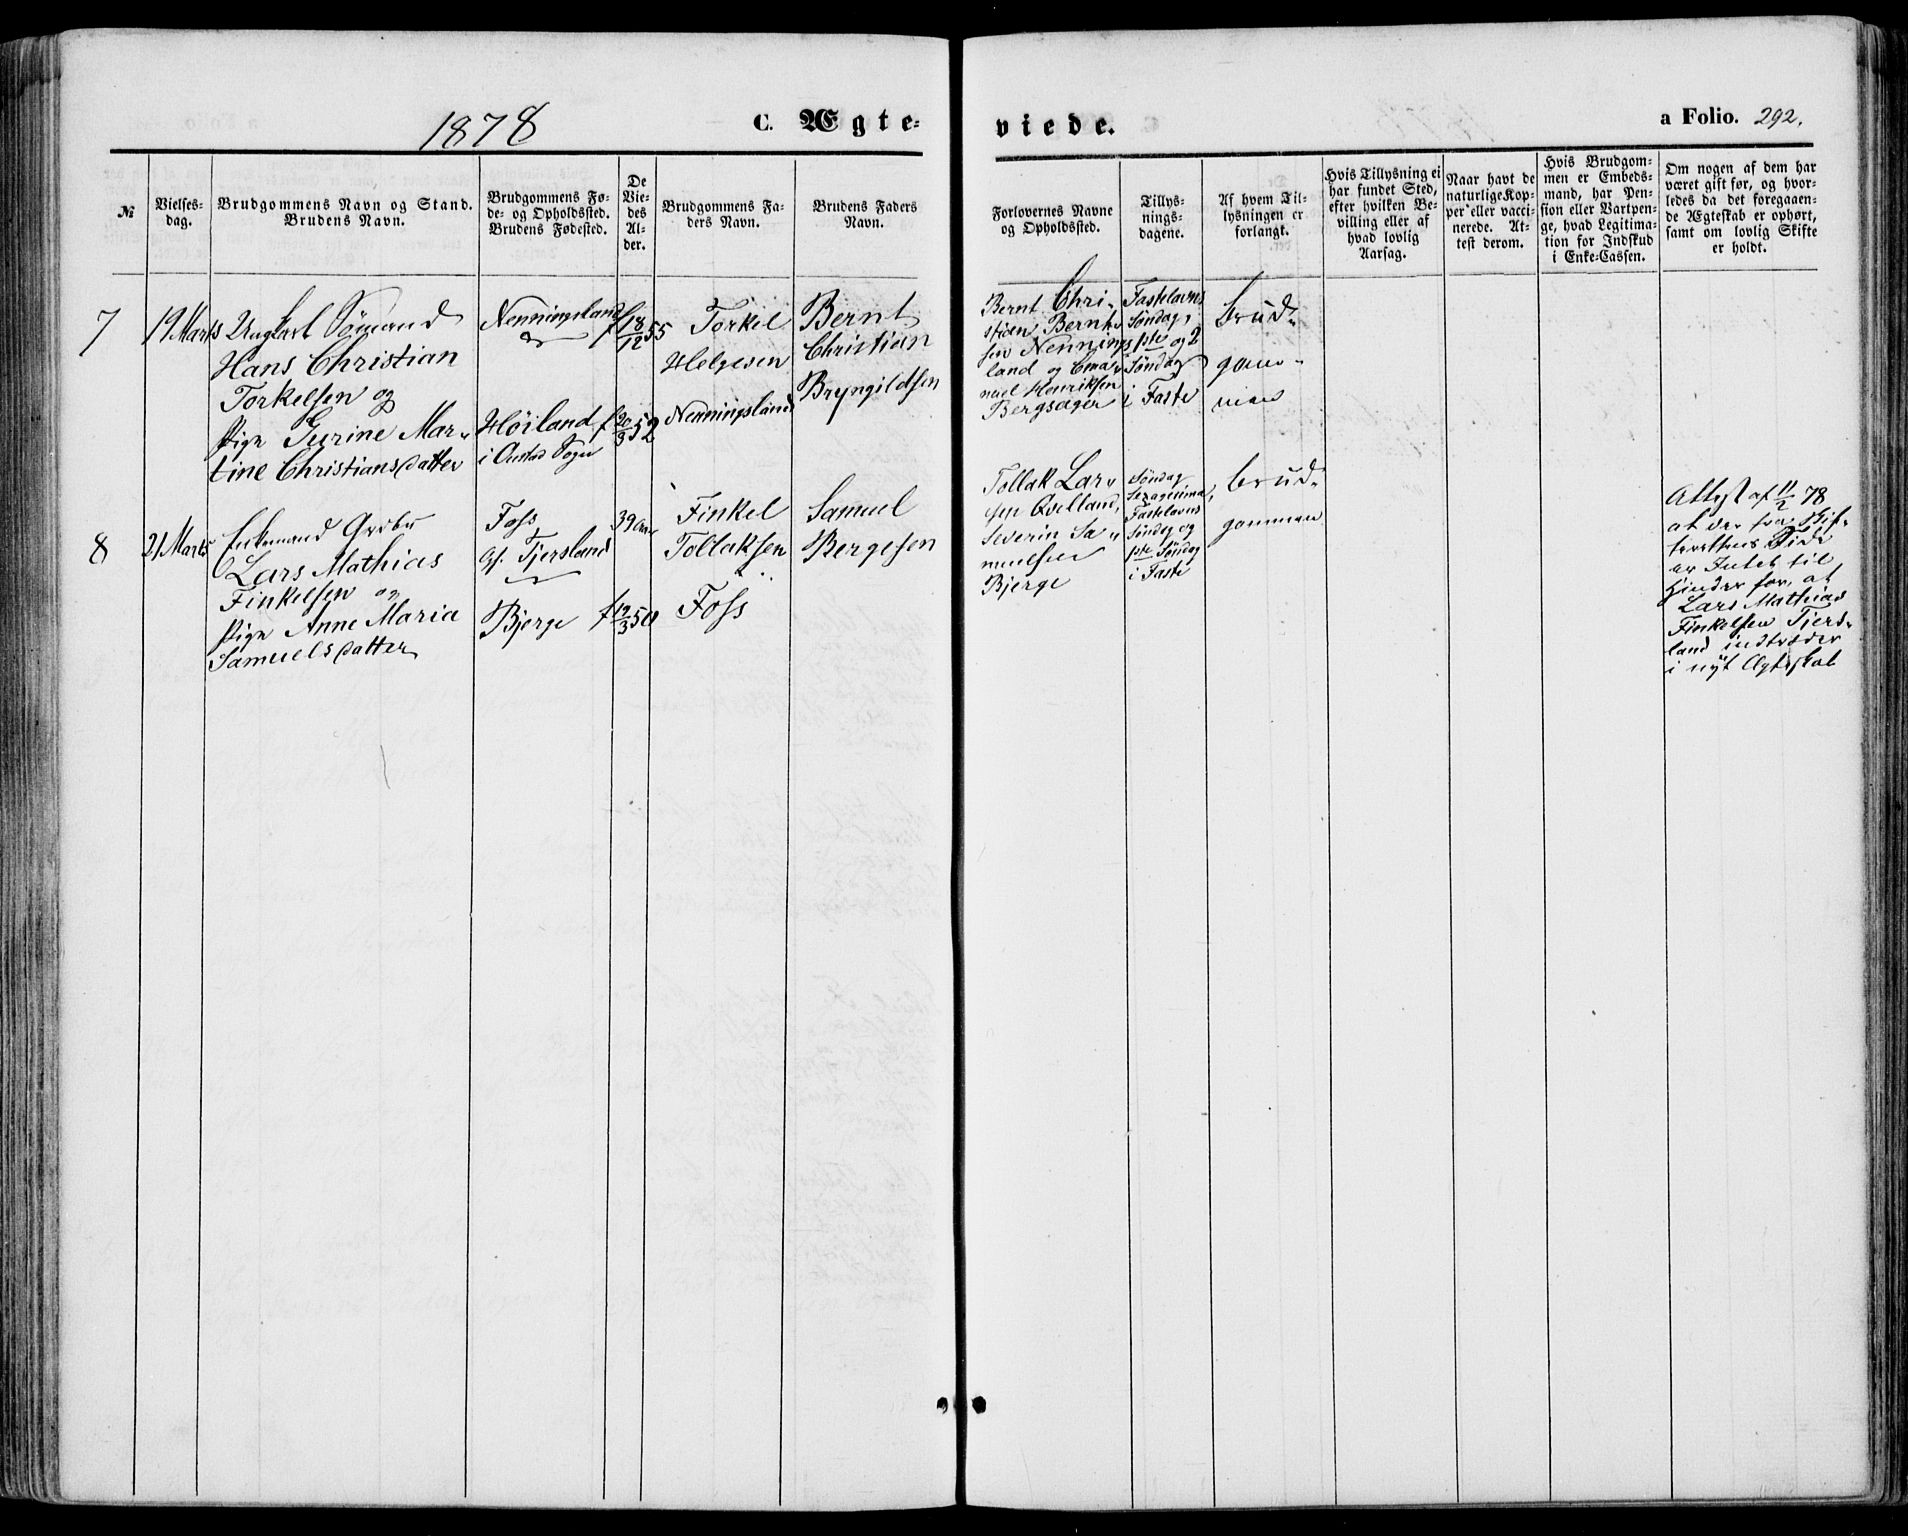 1878
C. Ægte-
viede.
a Folio. 292.
№
Vielses-
dag.
Brudgommens Navn og Stand.
Brudens Navn.
Brudgommens Fø-
de- og Opholdssted.
Brudens Fødested.
De
Vie-
des
Al-
der.
Brudgommens Fa-
ders Navn.
Brudens Faders
Navn.
Forlovernes Navne
og Opholdssted.
Tillys-
nings-
dagene.
Af hvem Til-
lysningen er
forlangt.
Hvis Tillysning ei
har fundet Sted,
efter hvilken Be-
villing eller af
hvad lovlig
Aarsag.
Naar havt de
naturlige Kop-
per eller vacci-
nerede. At-
test derom.
Hvis Brudgom-
men er Embeds-
mand, har Pen-
sion eller Vartpen-
ge, hvad Legitima-
tion for Indskud
i Enke-Cassen.
Om nogen af dem har
været gift før, og hvor-
ledes da det foregaaen-
de Ægteskab er ophørt,
samt om lovlig Skifte
er holdt.
7
19 Marts
Ungkarl Sömand
Hans Christian
Torkelsen og
Pige Gurine Mar-
tine Christiansdatter
Nenningsland
Höiland
i Sogn
f 18/12 55
f 20/3 52
Torkel
Helgesen
Nenningsland
Bernt
Christian
Bryngildsen
Bernt Chri-
stian Bernt-
sen Nennings
land og Ema-
nuel Henriksen
Bergsager
Fastelavns
Søndag,
1ste og 2
Søndag
i Faste
Brud-
gom-
men
8
21 Marts
Enkemand
Lars Mathias
Finkelsen og
Pige Anne Maria
Samuelsdatter
Foss
Tjersland
Bjerge
39 Aar
f 12/3 50
Finkel
Tollaksen
Foss
Samuel
Bergesen
Tollak Lar-
sen Qvelland,
Severin Sa-
muelsen
Bjerge
Søndag
Sexagesima,
Fastelavns
Søndag og
1ste Søndag
i Faste
Brud-
gommen
Attest af 11/2 78
at der fra Skif-
terettens Side
er Intet til
Hinder for, at
Lars Mathias
Finkelsen Tjers-
land indtræder
i nyt Ægteskab